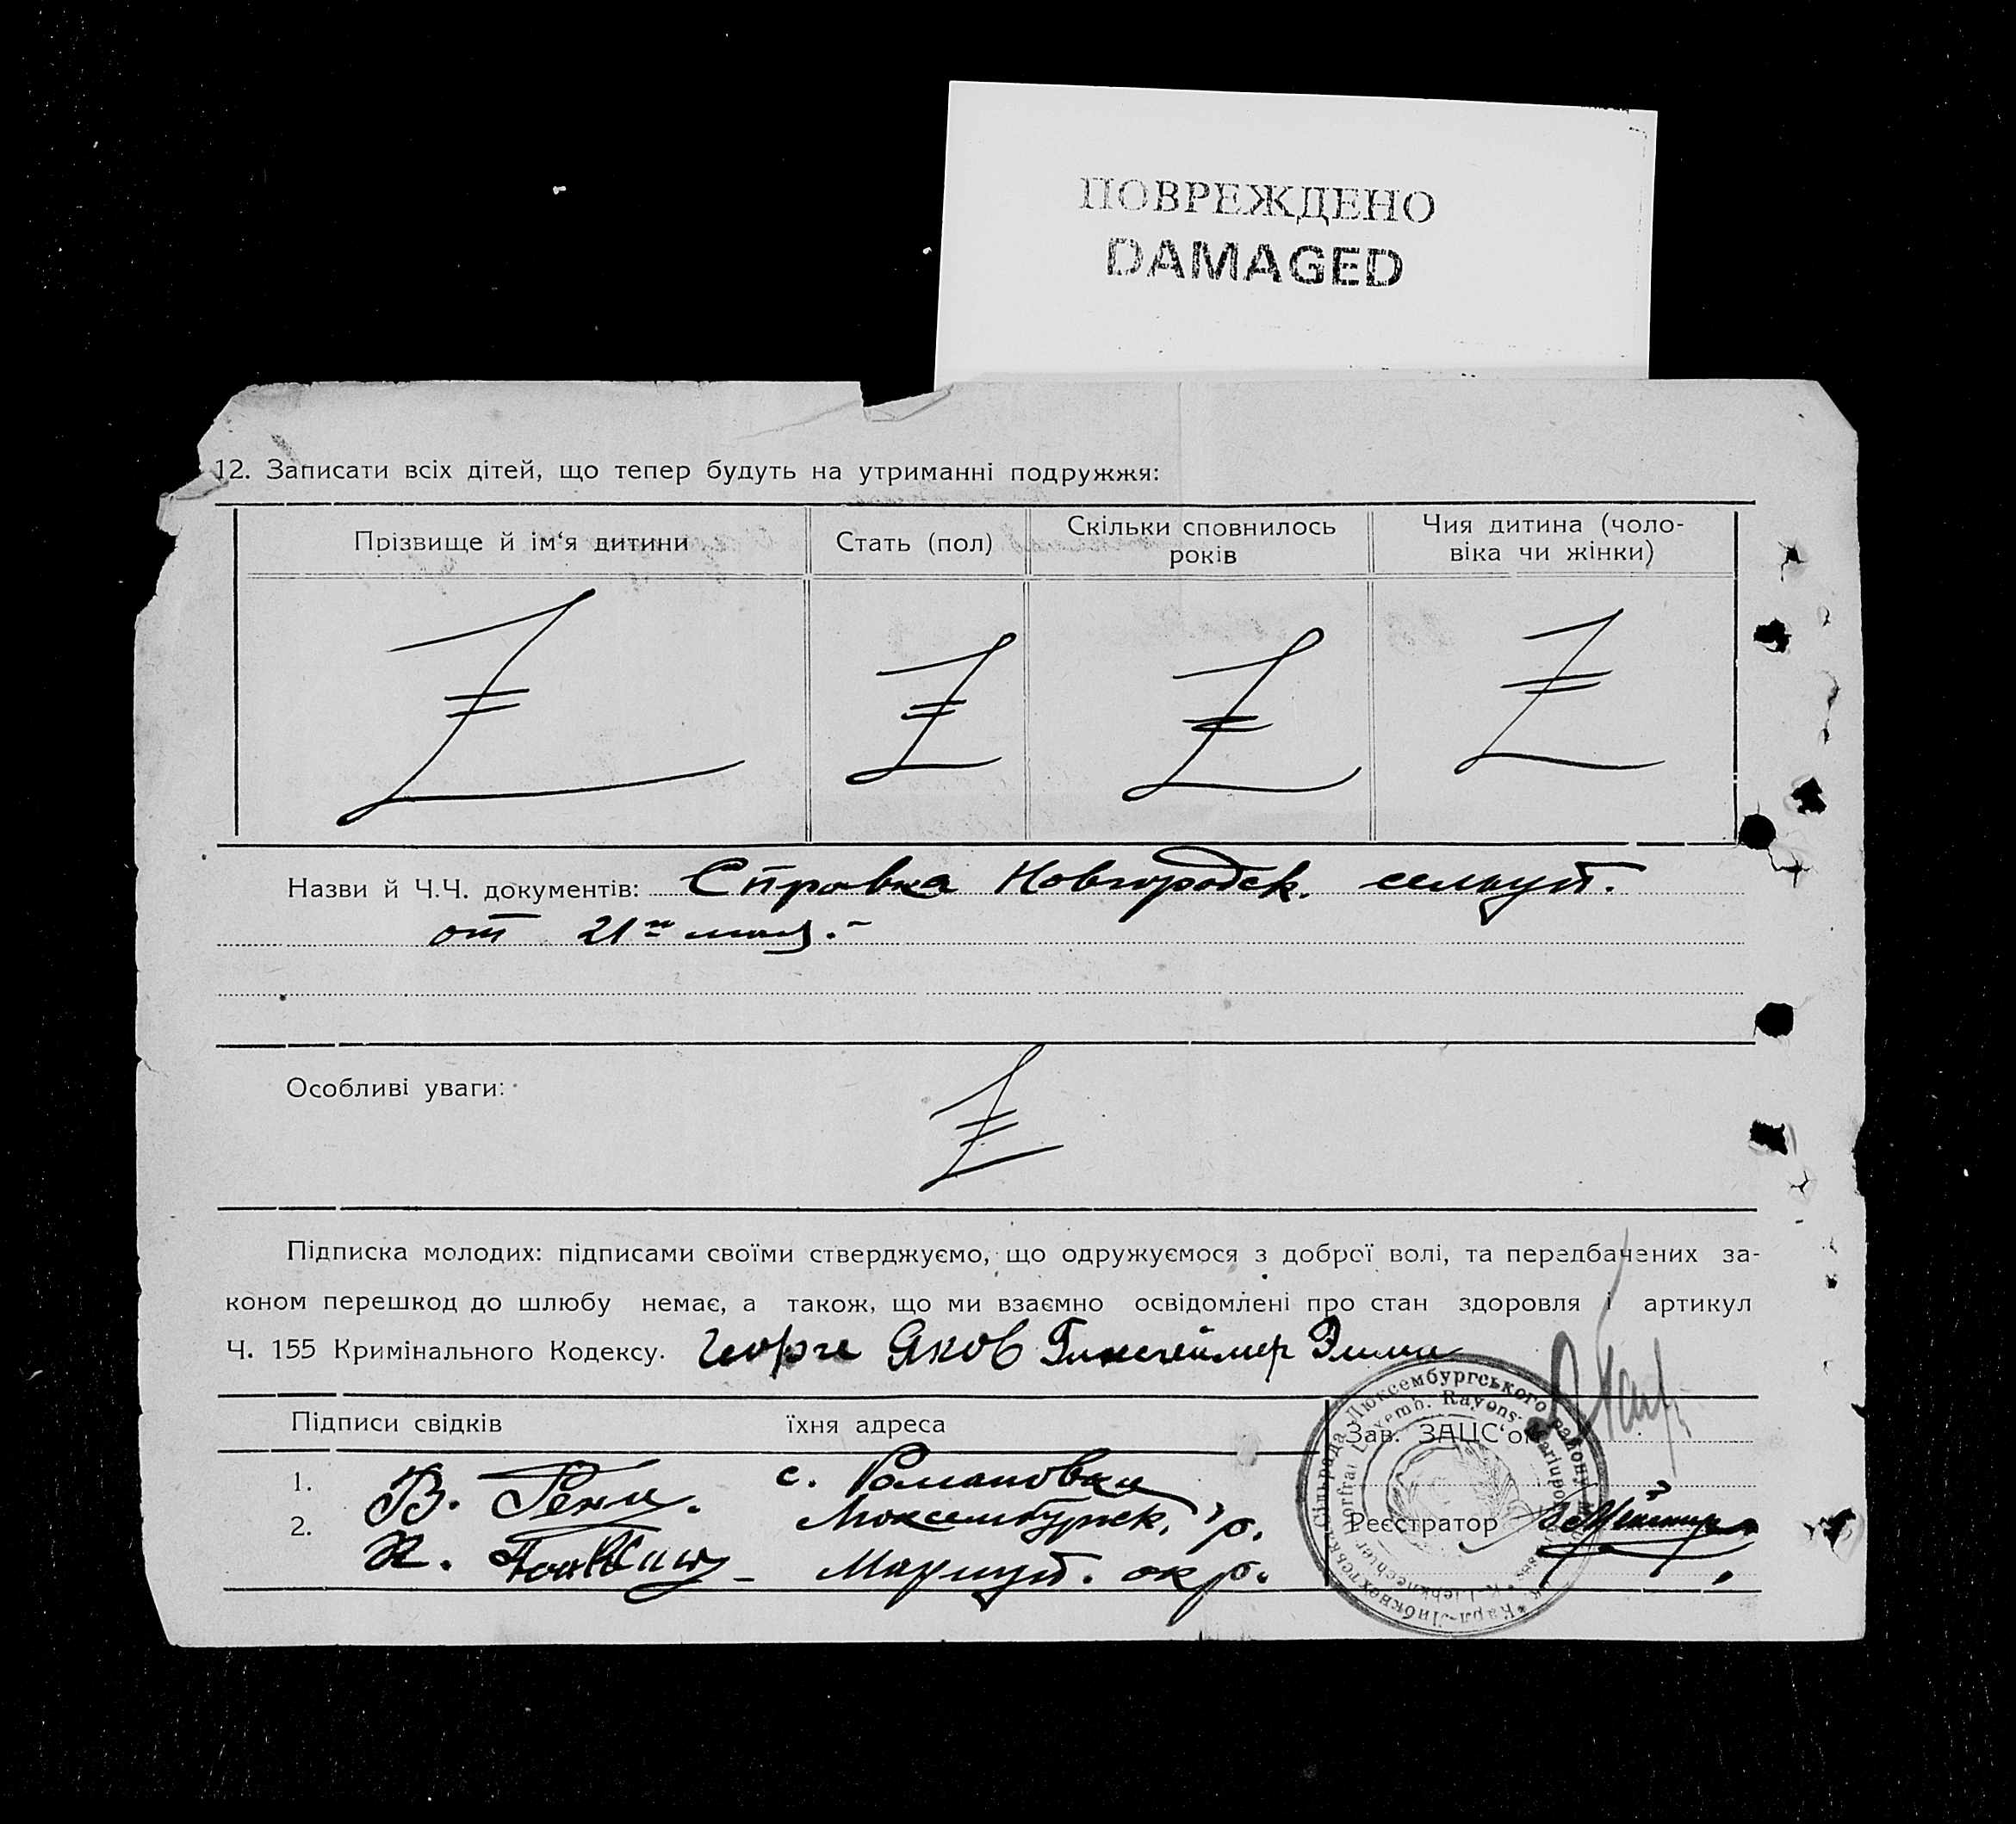 ПОВРЕЖДЕНО
DAMAGED
12. Записати всіх дітей, що тепер будуть на утриманні подружжя:
Прізвище й ім‘я дитини
Стать (пол)
Скільки сповнилось
років
Чия дитина (чоло-
віка чи жінки)
Назви й Ч.Ч. документів: Справка Новгородск.
от 21го мая.-
Особливі уваги:
Підписка молодих: підписами своїми стверджуємо, що одружуємося з доброї волі, та передбачених за-
коном перешкод до шлюбу немає, а також, що ми взаємно освідомлені про стан здоровля і артикул
Ч. 155 Кримінального Кодексу. Георге Яков
Підписи свідків
їхня адреса
Зав. ЗАЦС‘ом
1. В. с. Романовка
2. Люксембургск. р.
Мариуп. окр.
Реєстратор
Люксембургського району